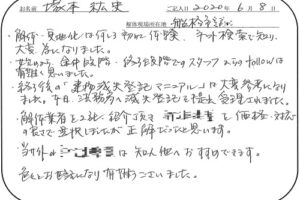 お名前 塚本 紘史 ご記入日 2020年6月8日
解体現場所在地 船橋市
・解体・更地化は何しろ初めての体験。ネット検索で知り、
大変参考になりました。
・始めから、途中段階・終了段階でのスタッフからのfollowは
有難く思いました。
・終了後の「建物滅失登記マニュアル」は大変参考になり
ました。本日、法務局へ滅失登記を提出、受理されました。
・解体業者を2社紹介頂き、価格・対応
の良さで選択しましたが正解だったと思います。
・は知人他へおすすめできます。
色々とお世話になり有難うございました。